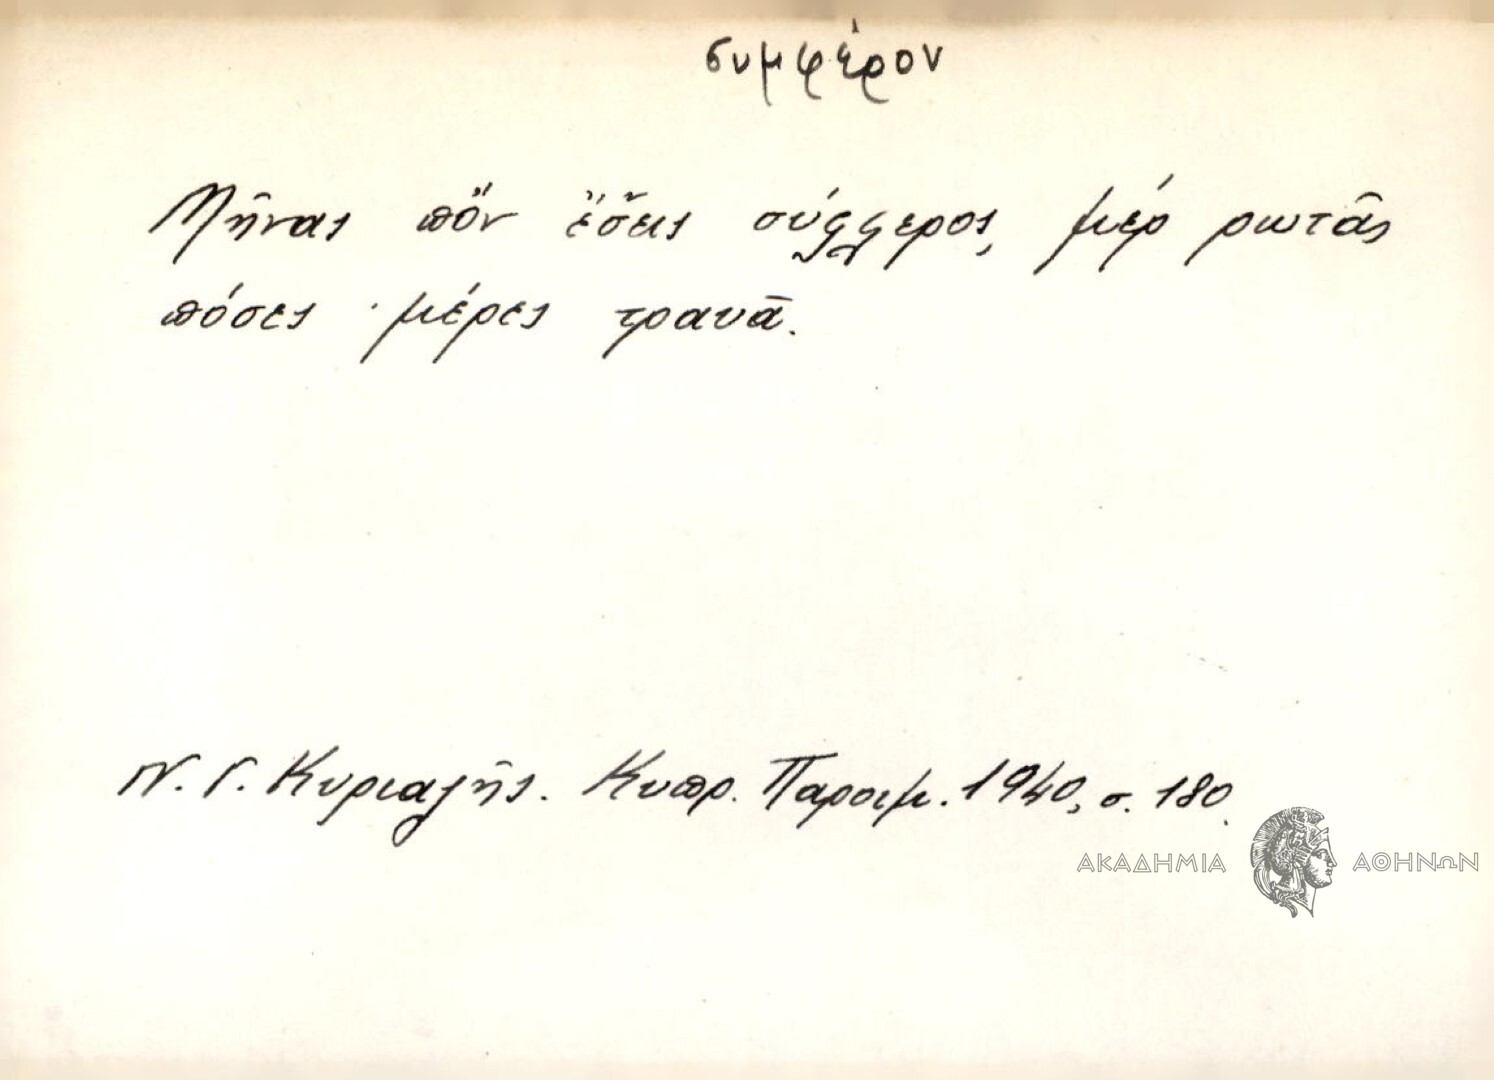 συμφέρον
Μῆνας πὄν ἔσ̌εις σύφφερος, μέρ ρωτᾶς
πόσες μέρες τραυᾶ.
Ν. Γ. Κυριαζῆς. Κυπρ. Παροιμ. 1940, σ. 180.
ΑΚΑΔΗΜΙΑ ΑΘΗΝΩΝ